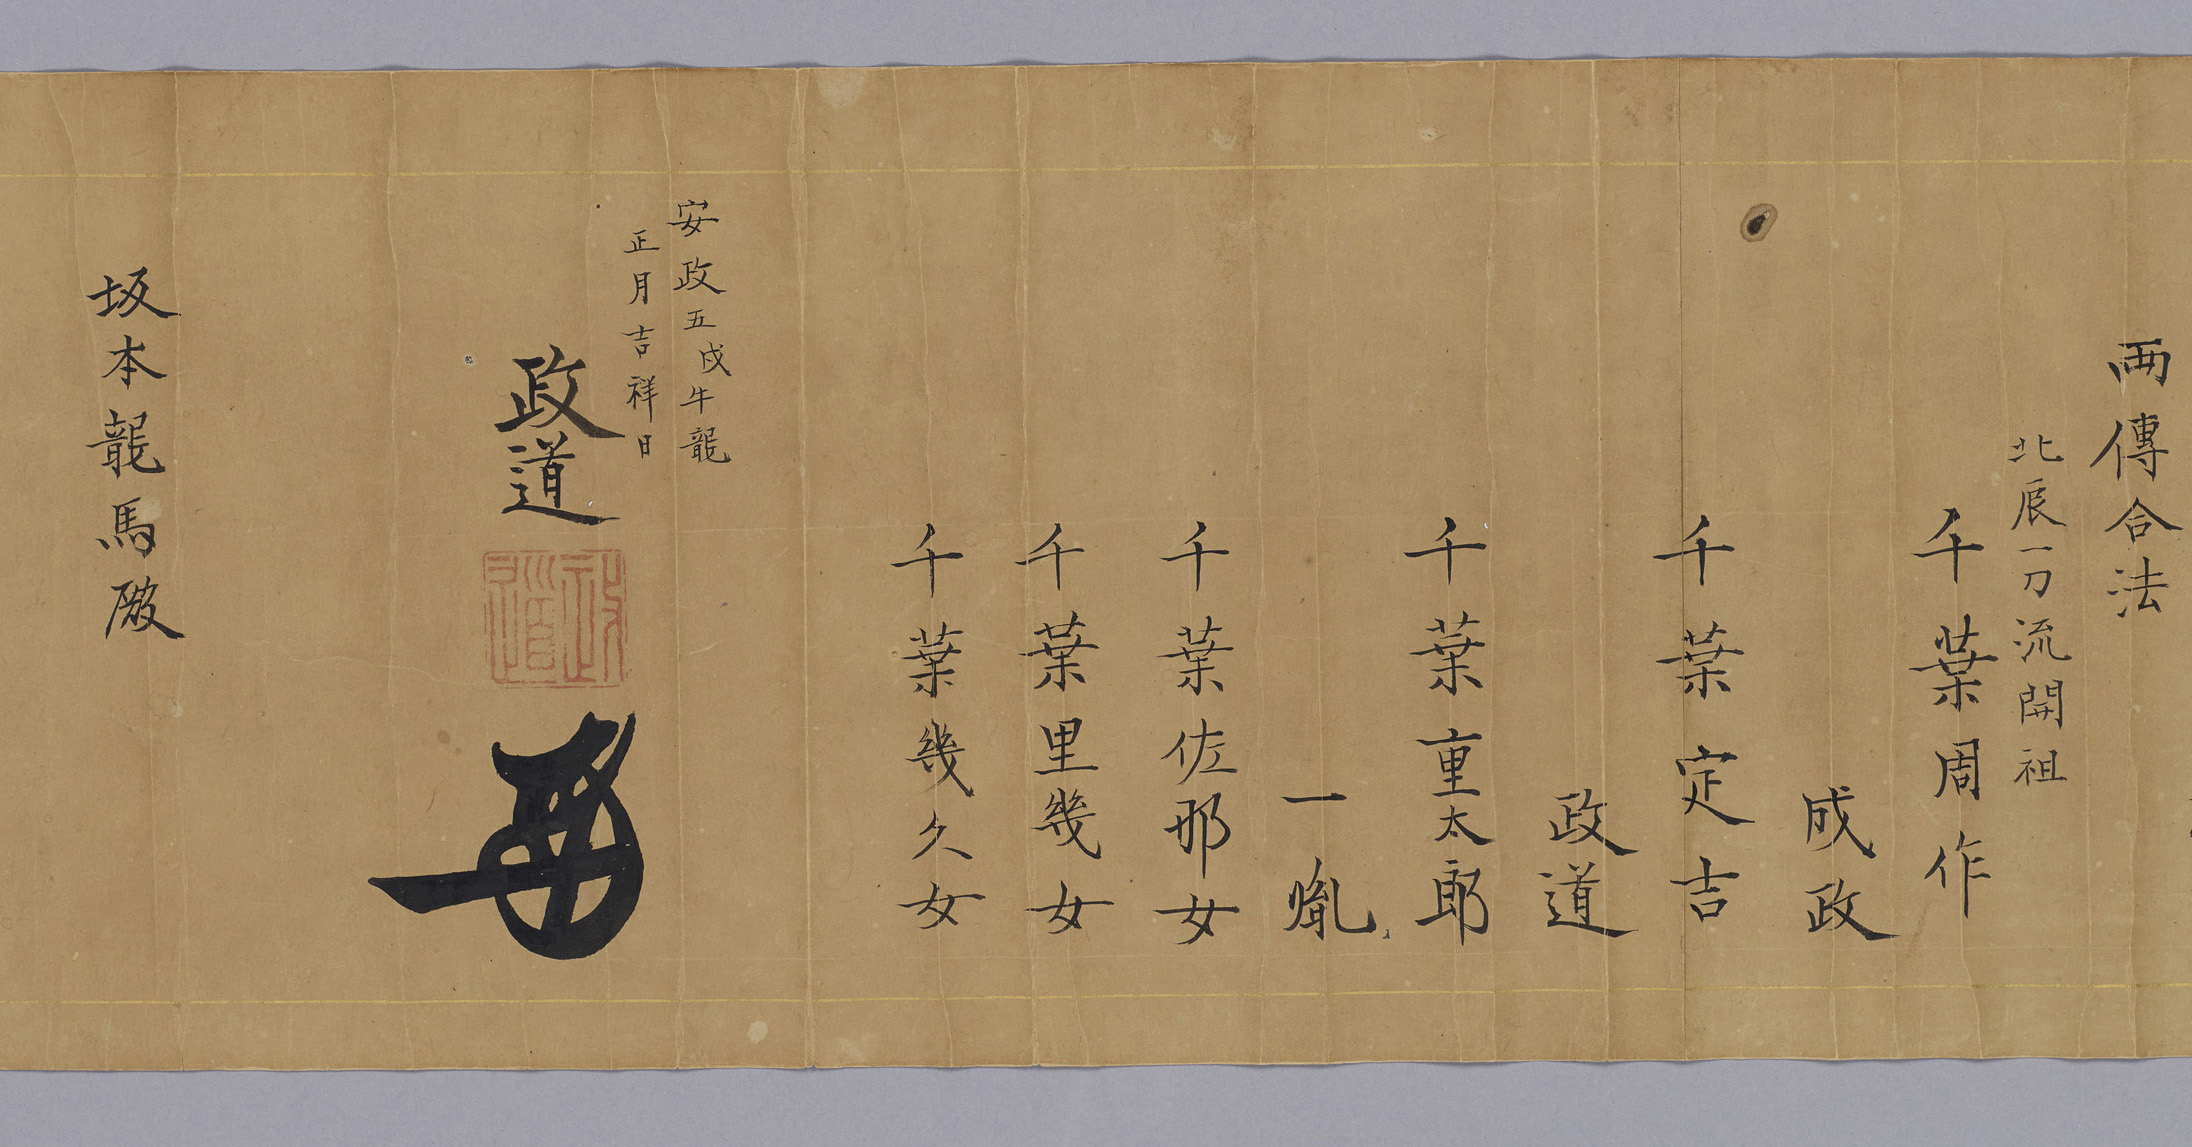 両傳合法
北辰一刀流開祖
千葉周作
成政
千葉定吉
政道
千葉重太郎
一胤
千葉佐那女
千葉里幾女
千葉幾久女
安政五戊午龍
正月吉祥日
政道
政道
坂本龍馬殿